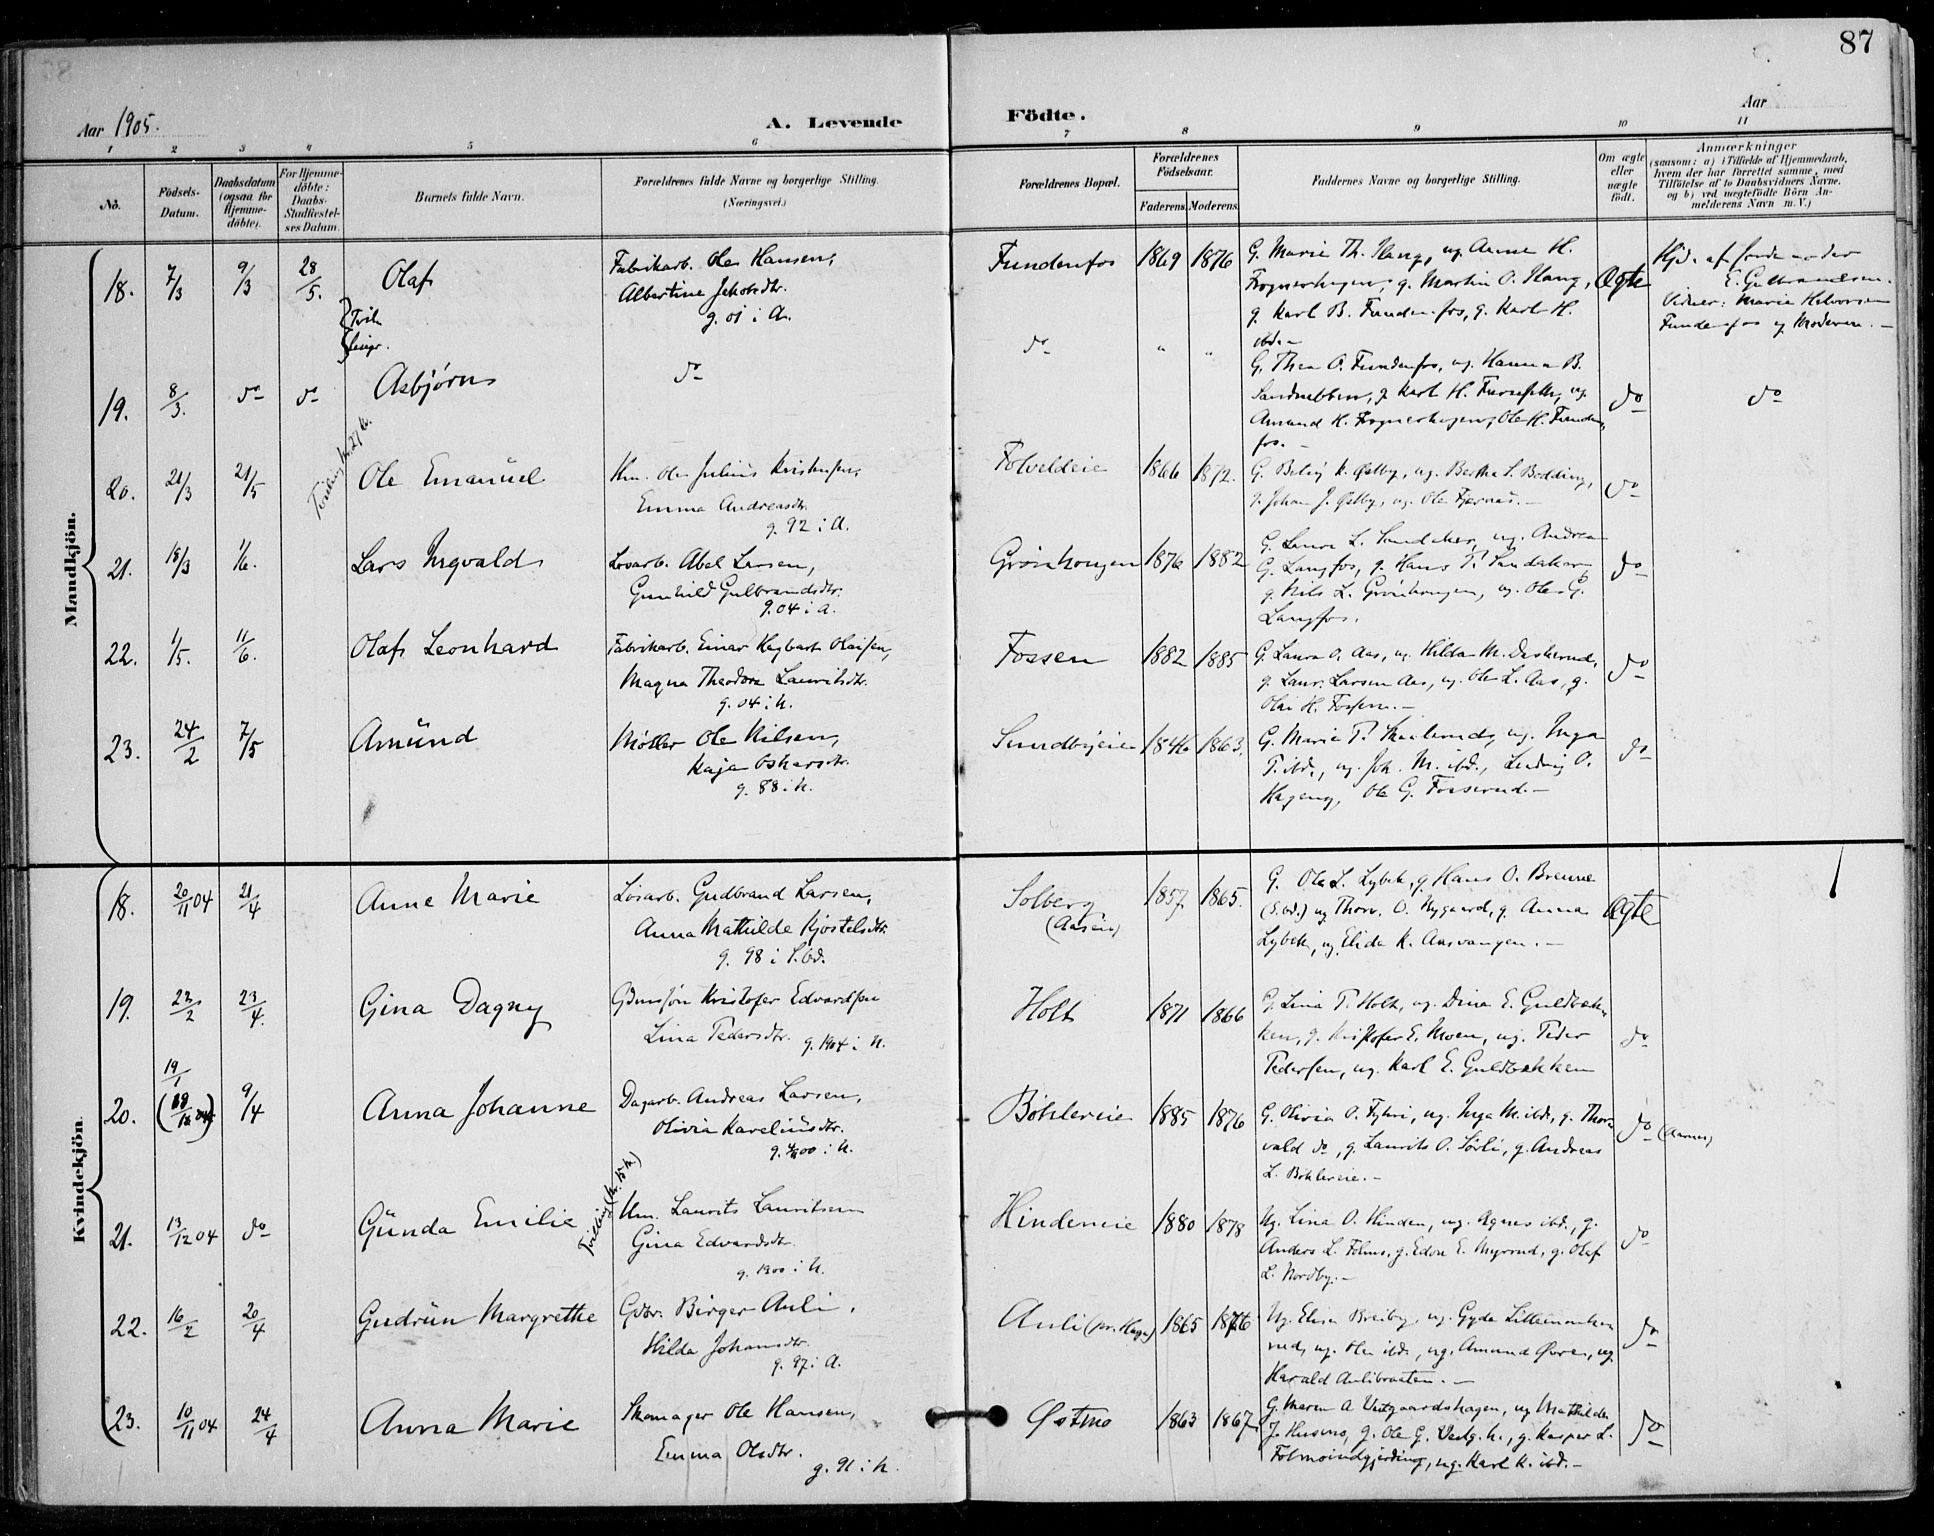 87
Aar 1905.
A. Levende
Födte.
Aar
1 2 3 4 5 6 7 8 9 10 11
No.
Födsels-
Datum.
Daabsdatum
(ogsaa for
Hjemme-
döbte).
For Hjemme-
döbte:
Daabs-
Stadfæstel-
ses Datum.
Barnets fulde Navn.
Forældrenes fulde Navne og borgerlige Stilling.
(Næringsvei.)
Forældrenes Bopæl.
Forældrenes
Födselsaar.
Faderens. Moderens.
Faddernes Navne og borgerlige Stilling.
Om ægte
eller
uægte
födt.
Anmærkninger
(saasom: a) i Tilfælde af Hjemmedaab,
hvem der har forrettet samme, med
Tilföielse af to Daabsvidners Navne.
og b) ved uægtefödte Börn An-
melderens Navn m. V.)
Mandkjön.
18. 7/3 9/3 28/5. Olaf
Fabrikarb. Ole Hansen,
Albertine Jakobsdtr.
g. 01 i A.
Fundenfos 1869 1876
G. Marie Th. Haug, ug. Anne H.
g. Martin O. Haug,
g. Karl B. Fundenfos, g. Karl H.
ibd. -
Ægte
Hjd. af
E. Gulbrandsen.
Vidner: Maria Halvorsen
Fundenfos og Moderen. -
19. 8/3. do do Asbjørn
do
do " "
G. Thea O. Fundenfos, ug. Hanna B.
g. Karl H. ug.
Amund H. Ole H. Funden-
fos. -
do
do
20. 21/3 21/5 Ole Emanuel
Hm. Ole Julius Kristiansen,
Emma Andreasdtr.
g. 92 i A.
1866 1872.
G. K. Østby, ug. Bertha S. Bodding,
g. Johan J. Østby, ug. Ole
do
21. 15/3 1/6. Lars Ingvald
Løsarb. Abel Larsen,
Gunhild Gulbrandsdtr.
g. 04 i A.
Grønhougen 1876 1882
G. Laura L. ug. Andrea
G. Langfos, g. Hans P. Sandaker,
g. Nils L. Grønhougen, ug. Ole G.
Langfos.
do
22. 1/5. 11/6. Olaf Leonhard
Fabrikarb. Einar Hagbart Olaisen,
Magna Theodora Lauritsdtr.
g. 04 i N.
Fossen 1882 1885
G. Laura O. Aas, ug. Hilda M.
g. Laur. Larsen Aas, ug. Ole L. Aas, g.
Olai H. Fossen. -
do
23. 24/2 7/5 Amund
Møller Ole Nilsen,
Kaja Oskarsdtr.
g. 88 i N.
Sundbyeie 1846 1863.
G. Marie P. ug. Inga
P. ibd., ug. Joh. M. ibd., Ludvig O.
Hageng, Ole G. Fosserud. -
do
Kvindekjön.
18. 20/11 04 21/4 Anne Marie
Løsarb. Gudbrand Larsen,
Anna Mathilde Kjostelsdtr.
g. 98 i S. Od.
Solberg
(Aasen)
1857 1865.
G. Ole L. Lybek, g. Hans O. Brenne
(S. Od.) ug. Thorv. O. Nygaard, g. Anna
Lybek, ug. Elida K. Aasvangen. -
Ægte
19. 22/2 23/4. Gina Dagny
Kristofer Edvardsen
Lina Pedersdtr. g. 1904 i N.
Holt 1871 1866
G. Lina P. Holt, ug. Dina E. Guldbæk-
ken, g. Kristofer E. Moen, ug. Peder
Pedersen, ug. Karl E. Guldbækken
do
20. 19/1 9/4 Anna Johanne
Dagarb. Andreas Larsen,
Olivia Kareliusdtr.
Bøhlereie 1885 1876
G. Olivia O. ug. Inga M. ibd., g. Thor-
vald do, g. Laurits O. Sørli, g. Andreas
L. Bøhlereie. -
do
21. 13/12 04 do Gunda Emilie
Hm. Laurits Lauritsen
Gina Edvardsdtr.
g. 1900 i N.
Hindeneie 1880 1878
Ug. Lina O. Hinden, ug. Agnes ibd., g.
Anders L. g. Edon E. Myrrud, g. Olaf
L. Nordby. -
do
22. 16/2 20/4 Gudrun Margrethe
Gdbr. Birger Auli,
Hilda Johansdtr.
g. 97 i A.
Auli 1865 1876
Ug. Elisa Breiby, ug. Gyda
ug. Ole ibd., ug. Amund Øvre, ug.
Harald Aulibraaten. -
do
23. 10/11 04 24/4 Anna Marie
Skomager Ole Hansen,
Emma Olsdtr.
g. 91 i N.
Østmo 1863 1867
G. Maren A. Vestgaardshagen, ug. Mathilde
J. Husmo, g. Ole G. Vestg. h., g. Kasper L.
ug. Karl K. ibd. -
do